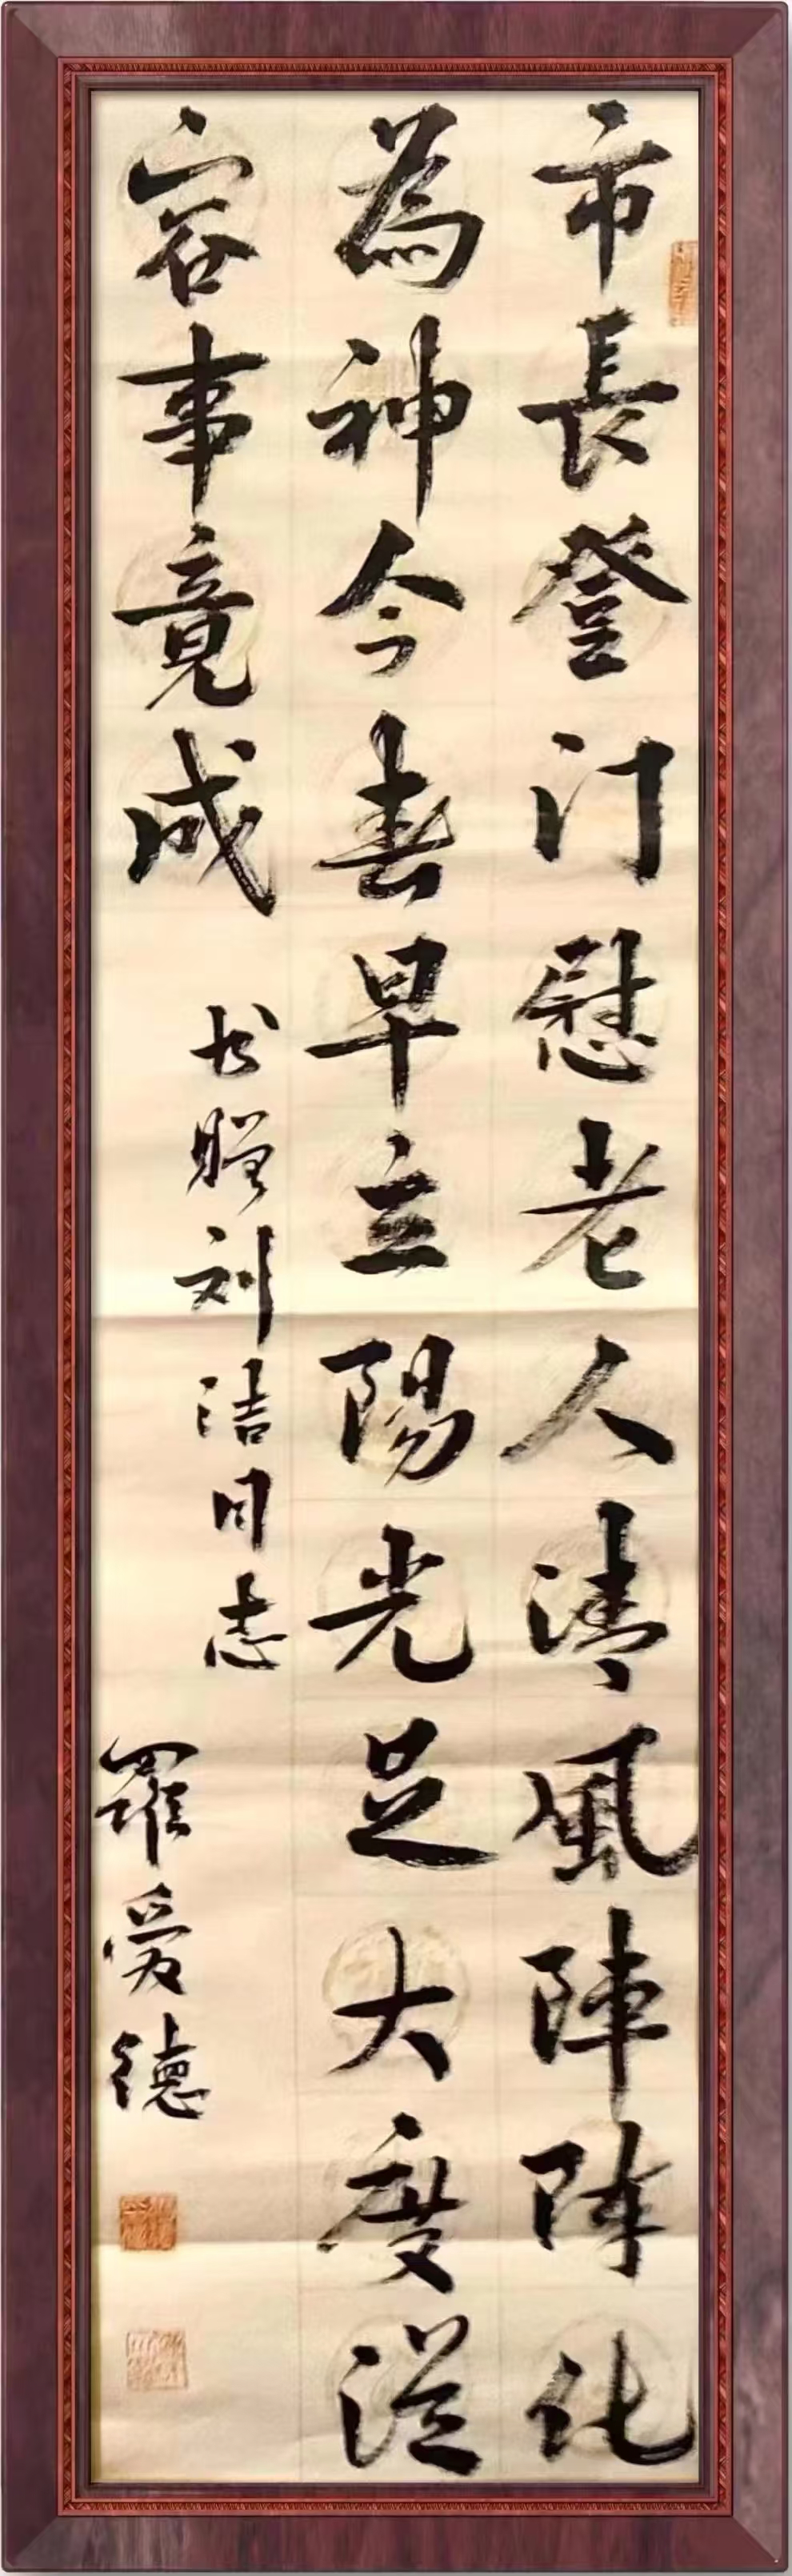 市長登门慰老人清風陣阵化
為神今春早立陽光足大度從
容事竟成
书赠刘洁同志
羅爱德